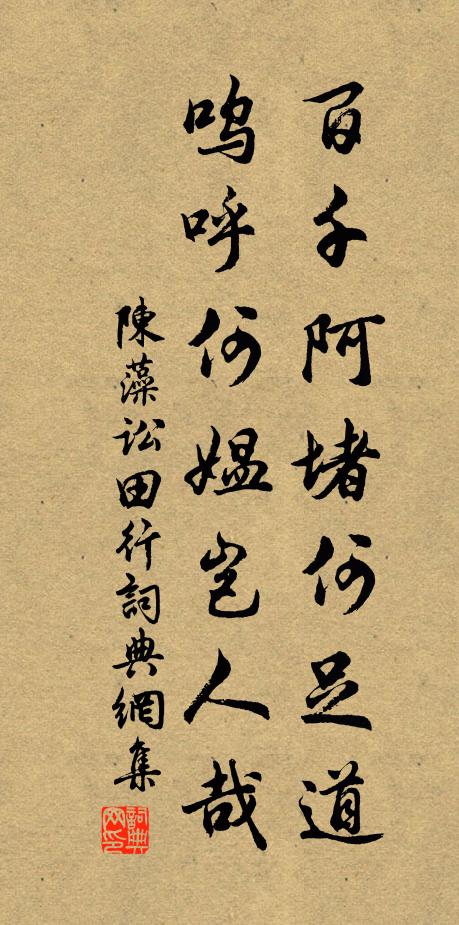 百千阿堵何足道
嗚呼何媼豈人哉
陳藻訟田行詞典網集
詞典网印